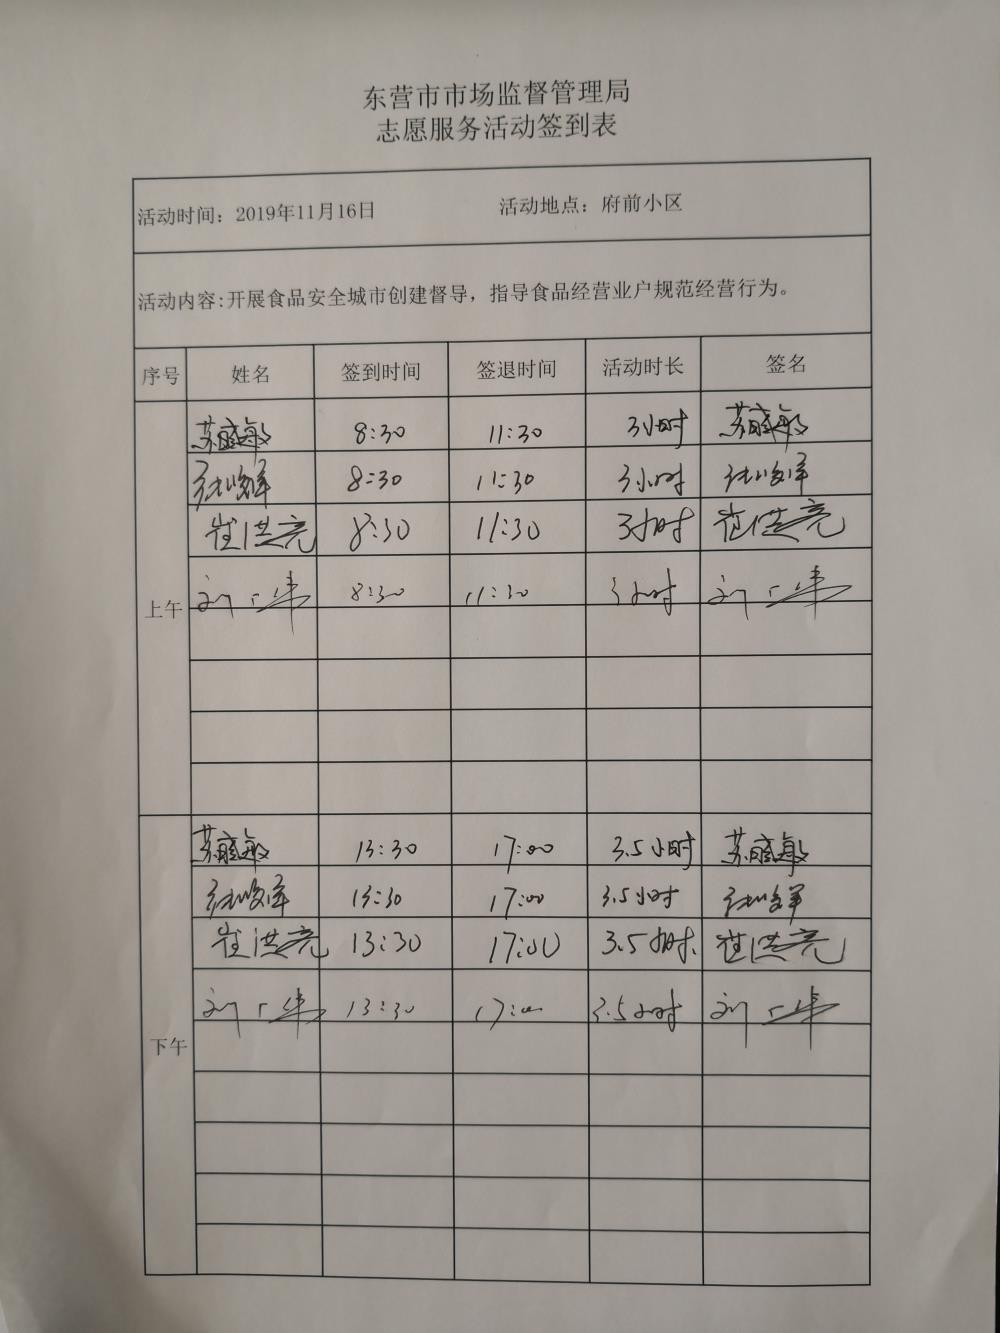 东营市市场监督管理局
志愿服务活动签到表
活动时间：2019年11月16日 活动地点：府前小区
活动内容:开展食品安全城市创建督导，指导食品经营业户规范经营行为。
序号 姓名 签到时间 签退时间 活动时长 签名
苏盛敏 8:30 11:30 3小时 苏盛敏
8:30 11:30 3小时
崔洪亮 8:30 11:30 3小时 崔洪亮
上午 刘 8:30 11:30 3小时 刘
苏盛敏 13:30 17:00 3.5小时 苏盛敏
13:30 17:00 3.5小时
崔洪亮 13:30 17:00 3.5小时 崔洪亮
刘 13:30 17:00 3.5小时 刘
下午